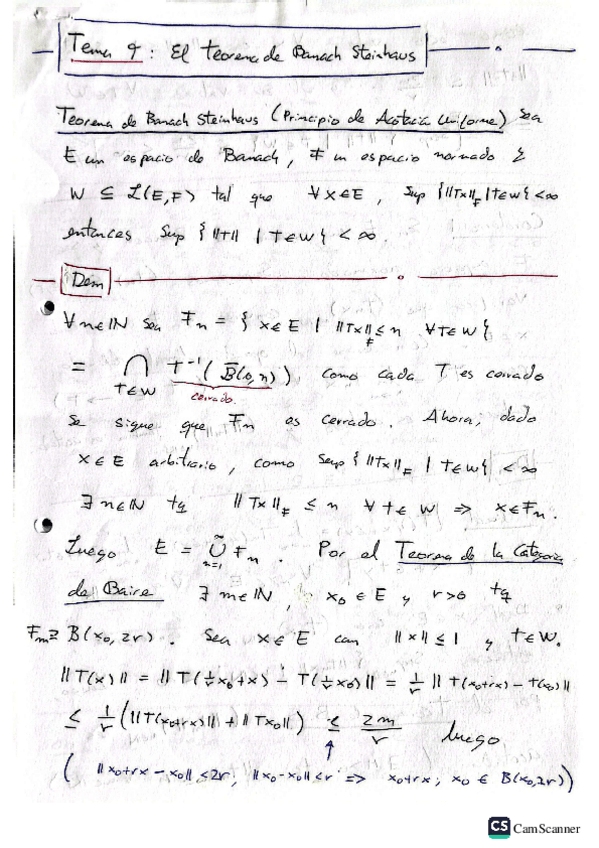 Tema 9: El teorema de Banach Steinhaus
Teorema de Banach Steinhaus (Principio de Acotación Uniforme) Sea
E un espacio de Banach, F un espacio normado y
W ⊆ L(E,F) tal que ∀x∈E, Sup {||Tx||_F | T∈W} < ∞
entonces Sup {||T|| | T∈W} < ∞
Dem
∀n∈ℕ sea F_n = {x∈E | ||Tx||_F ≤ n ∀T∈W}
= ⋂_{T∈W} T⁻¹(B̄(0,n)) como cada T es cerrado
cerrado
se sigue que F_n es cerrado. Ahora, dado
x∈E arbitrario, como Sup {||Tx||_F | T∈W} < ∞
∃n∈ℕ tq ||Tx||_F ≤ n ∀T∈W ⇒ x∈F_n.
Luego E = ⋃_{n=1}^∞ F_n. Por el Teorema de la Categoria
de Baire ∃m∈ℕ, x₀∈E y r>0 tq
F_m ⊇ B(x₀, 2r). Sea x∈E con ||x|| ≤ 1 y T∈W.
||T(x)|| = ||T(1/r x₀+x) - T(1/r x₀)|| = 1/r ||T(x₀+rx) - T(x₀)||
≤ 1/r (||T(x₀+rx)|| + ||Tx₀||) ≤ 2m/r luego
(||x₀+rx-x₀|| < 2r, ||x₀-x₀|| < r ⇒ x₀+rx, x₀ ∈ B(x₀,2r))
CS CamScanner